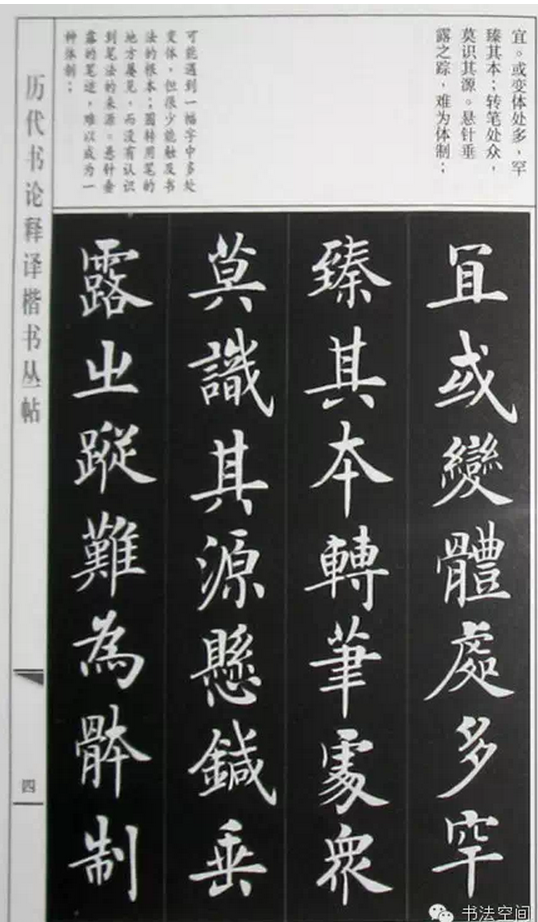 宜。或变体处多，罕
臻其本；转笔处众，
莫识其源。悬针垂
露之踪，难为体制；
可能遇到一幅字中多处
变体，但很少能触及书
法的根本；圆转用笔的
地方屡见，而没有认识
到笔法的来源。悬针垂
露的笔迹，难以成为一
种体制；
宜或變體處多罕
臻其本轉筆處眾
莫識其源懸鍼垂
露之蹤難為體制
历代书论释译楷书丛帖
四
书法空间